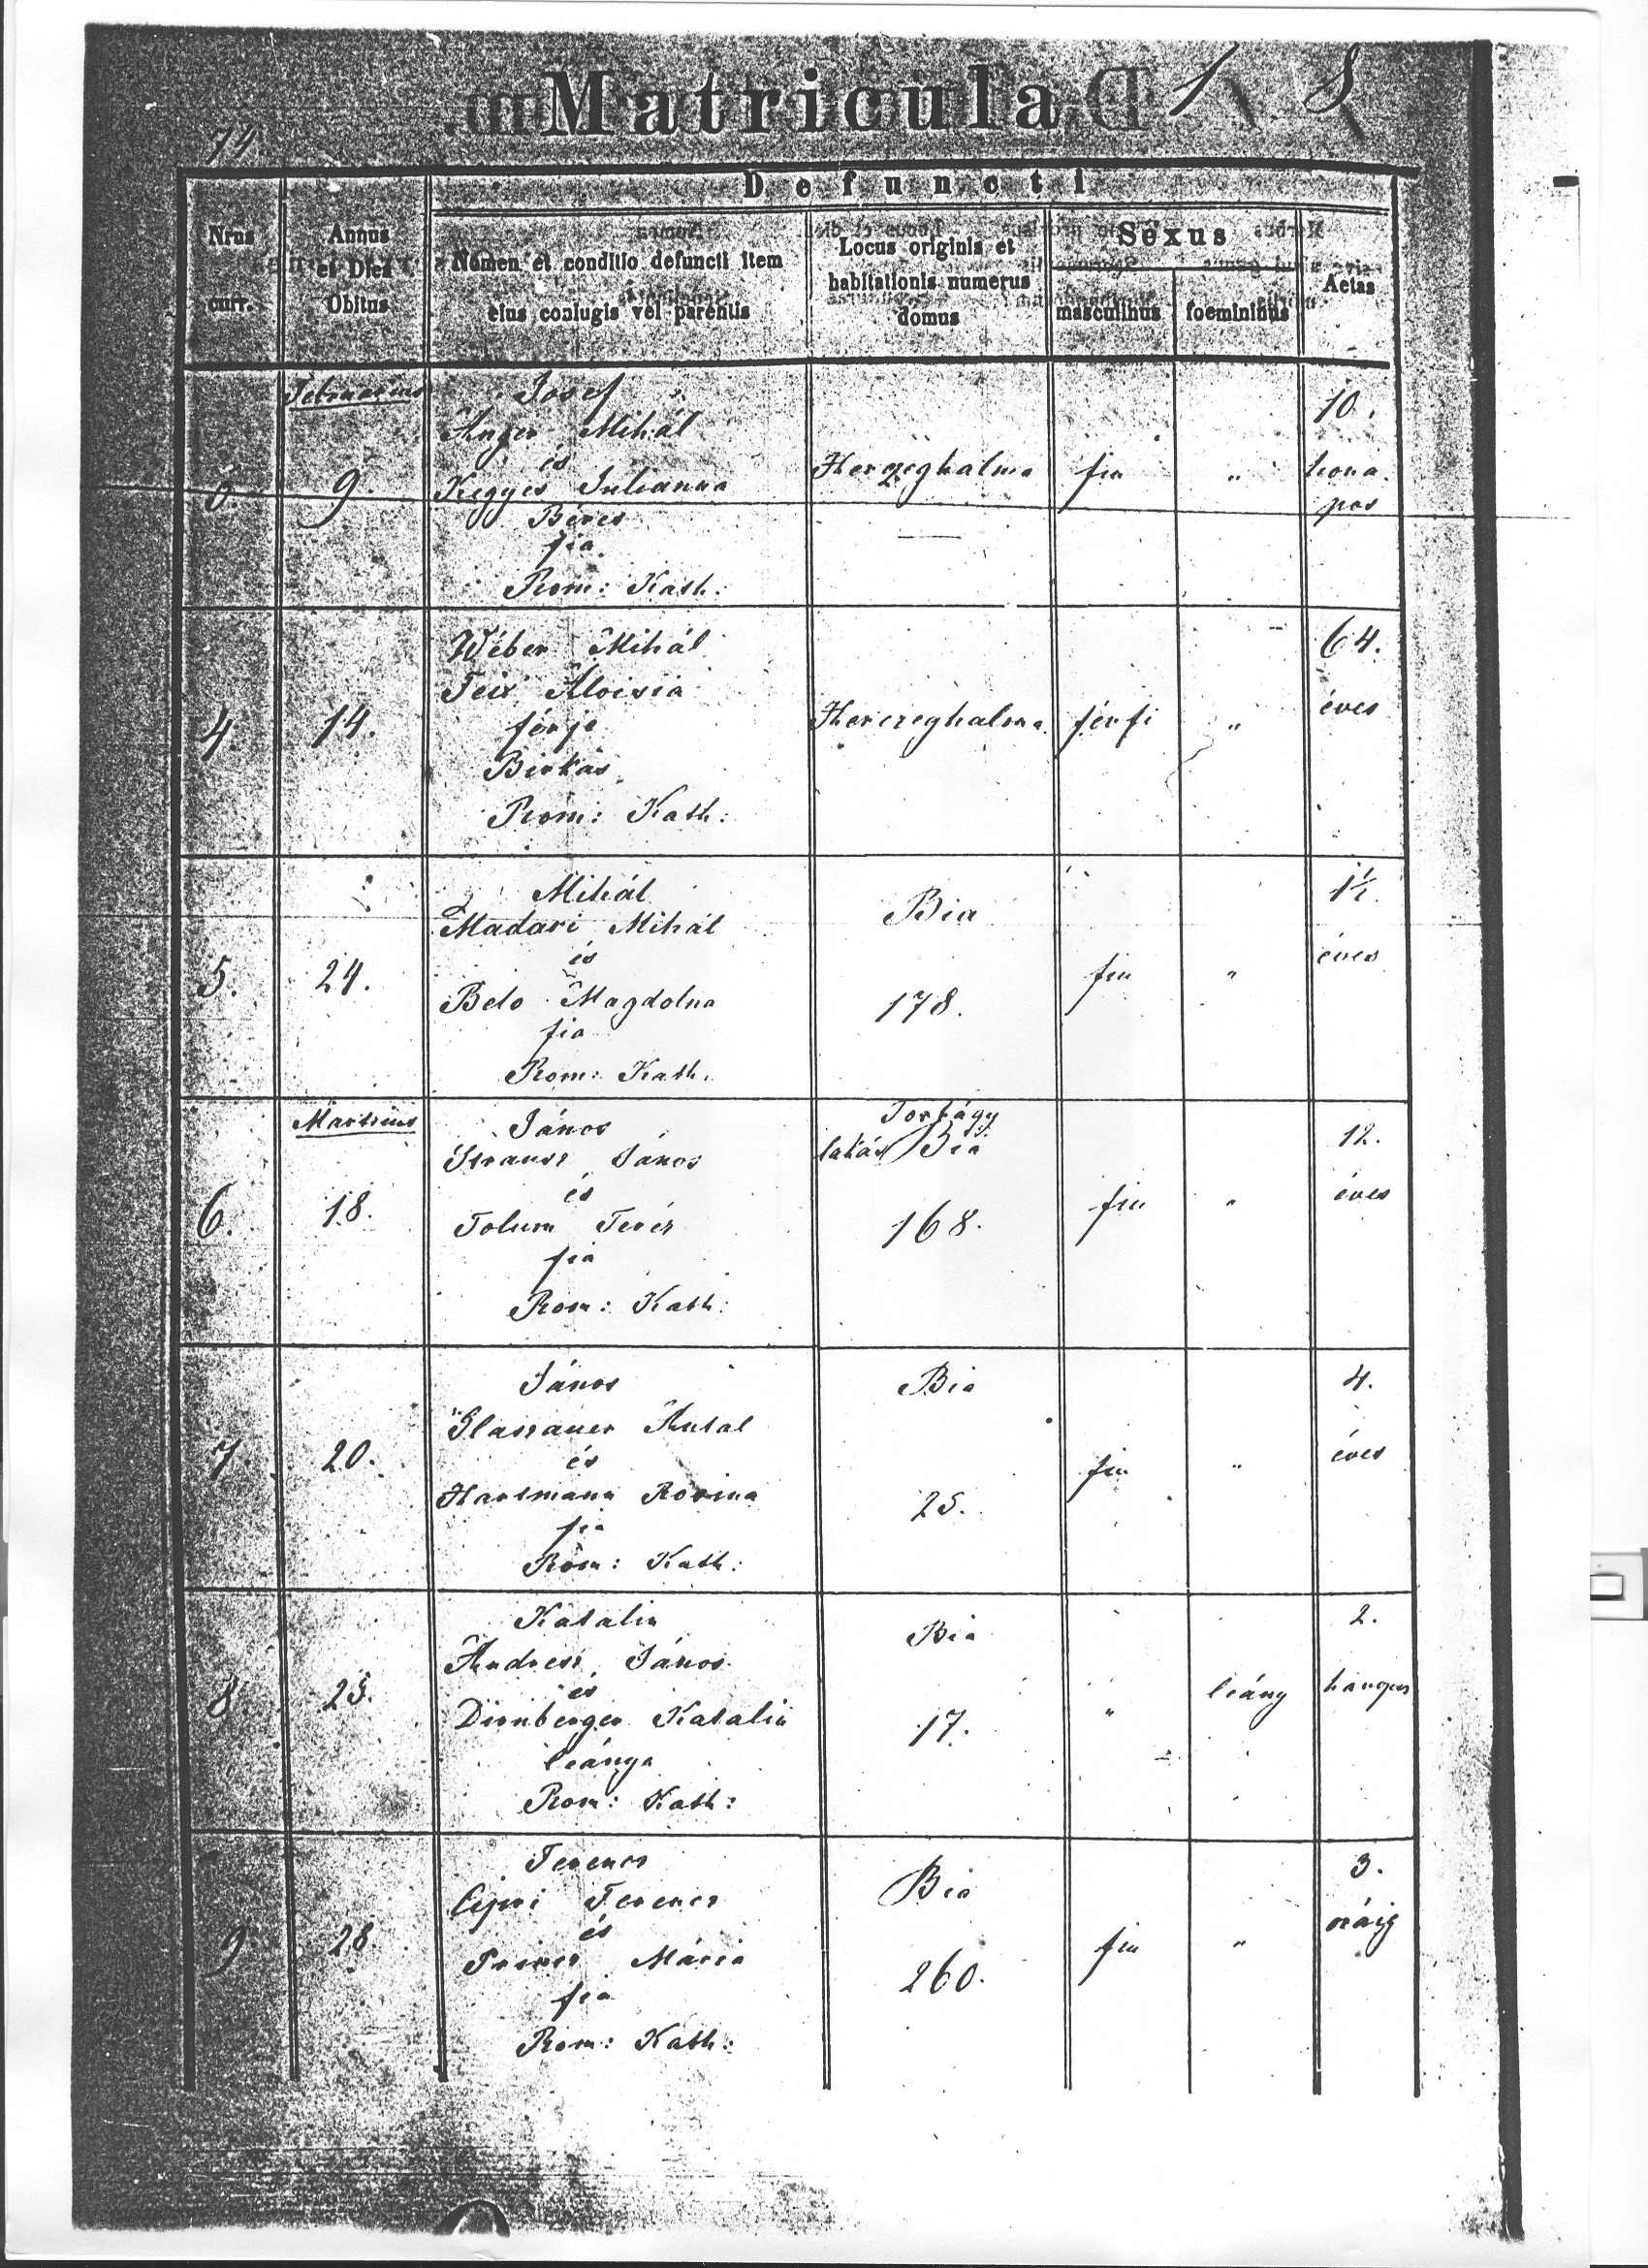 Matricula
74
Defuncti
Nrus curr.
Annus et Dies Obitus
Nomen et conditio defuncti item eius coniugis vel parentis
Locus originis et habitationis numerus domus
Sexus
masculinus
foemininus
Aetas
Februarius
9.
Josef
Unger Mihál
és
Kegyes Julianna
Béres
fia
Rom: Kath:
Herczeghalma
fiu
"
10.
hona
pos
4.
14.
Wéber Mihál
Aloisia
férje
Birkás
Rom: Kath:
Herczeghalma
férfi
"
64.
éves
5.
24.
Mihál
Madari Mihál
és
Belo Magdolna
fia
Rom: Kath.
Bia
178.
fiu
"
éves
6.
Martius
18.
János
Strausz János
és
Teréz
fia
Rom: Kath:
Torbágy
lakás Bia
168.
fiu
"
12.
éves
7.
20.
János
Antal
és
Hartmann Rosina
fia
Rom: Kath:
Bia
25.
fiu
"
4.
éves
8.
25.
Katalin
Andresz János
és
Dirnberger Katalin
leánya
Rom: Kath:
Bia
17.
"
leány
2.
9
28.
Ferencz
Ferencz
és
Mária
fia
Rom: Kath:
Bia
260.
fiu
"
3.
óráig